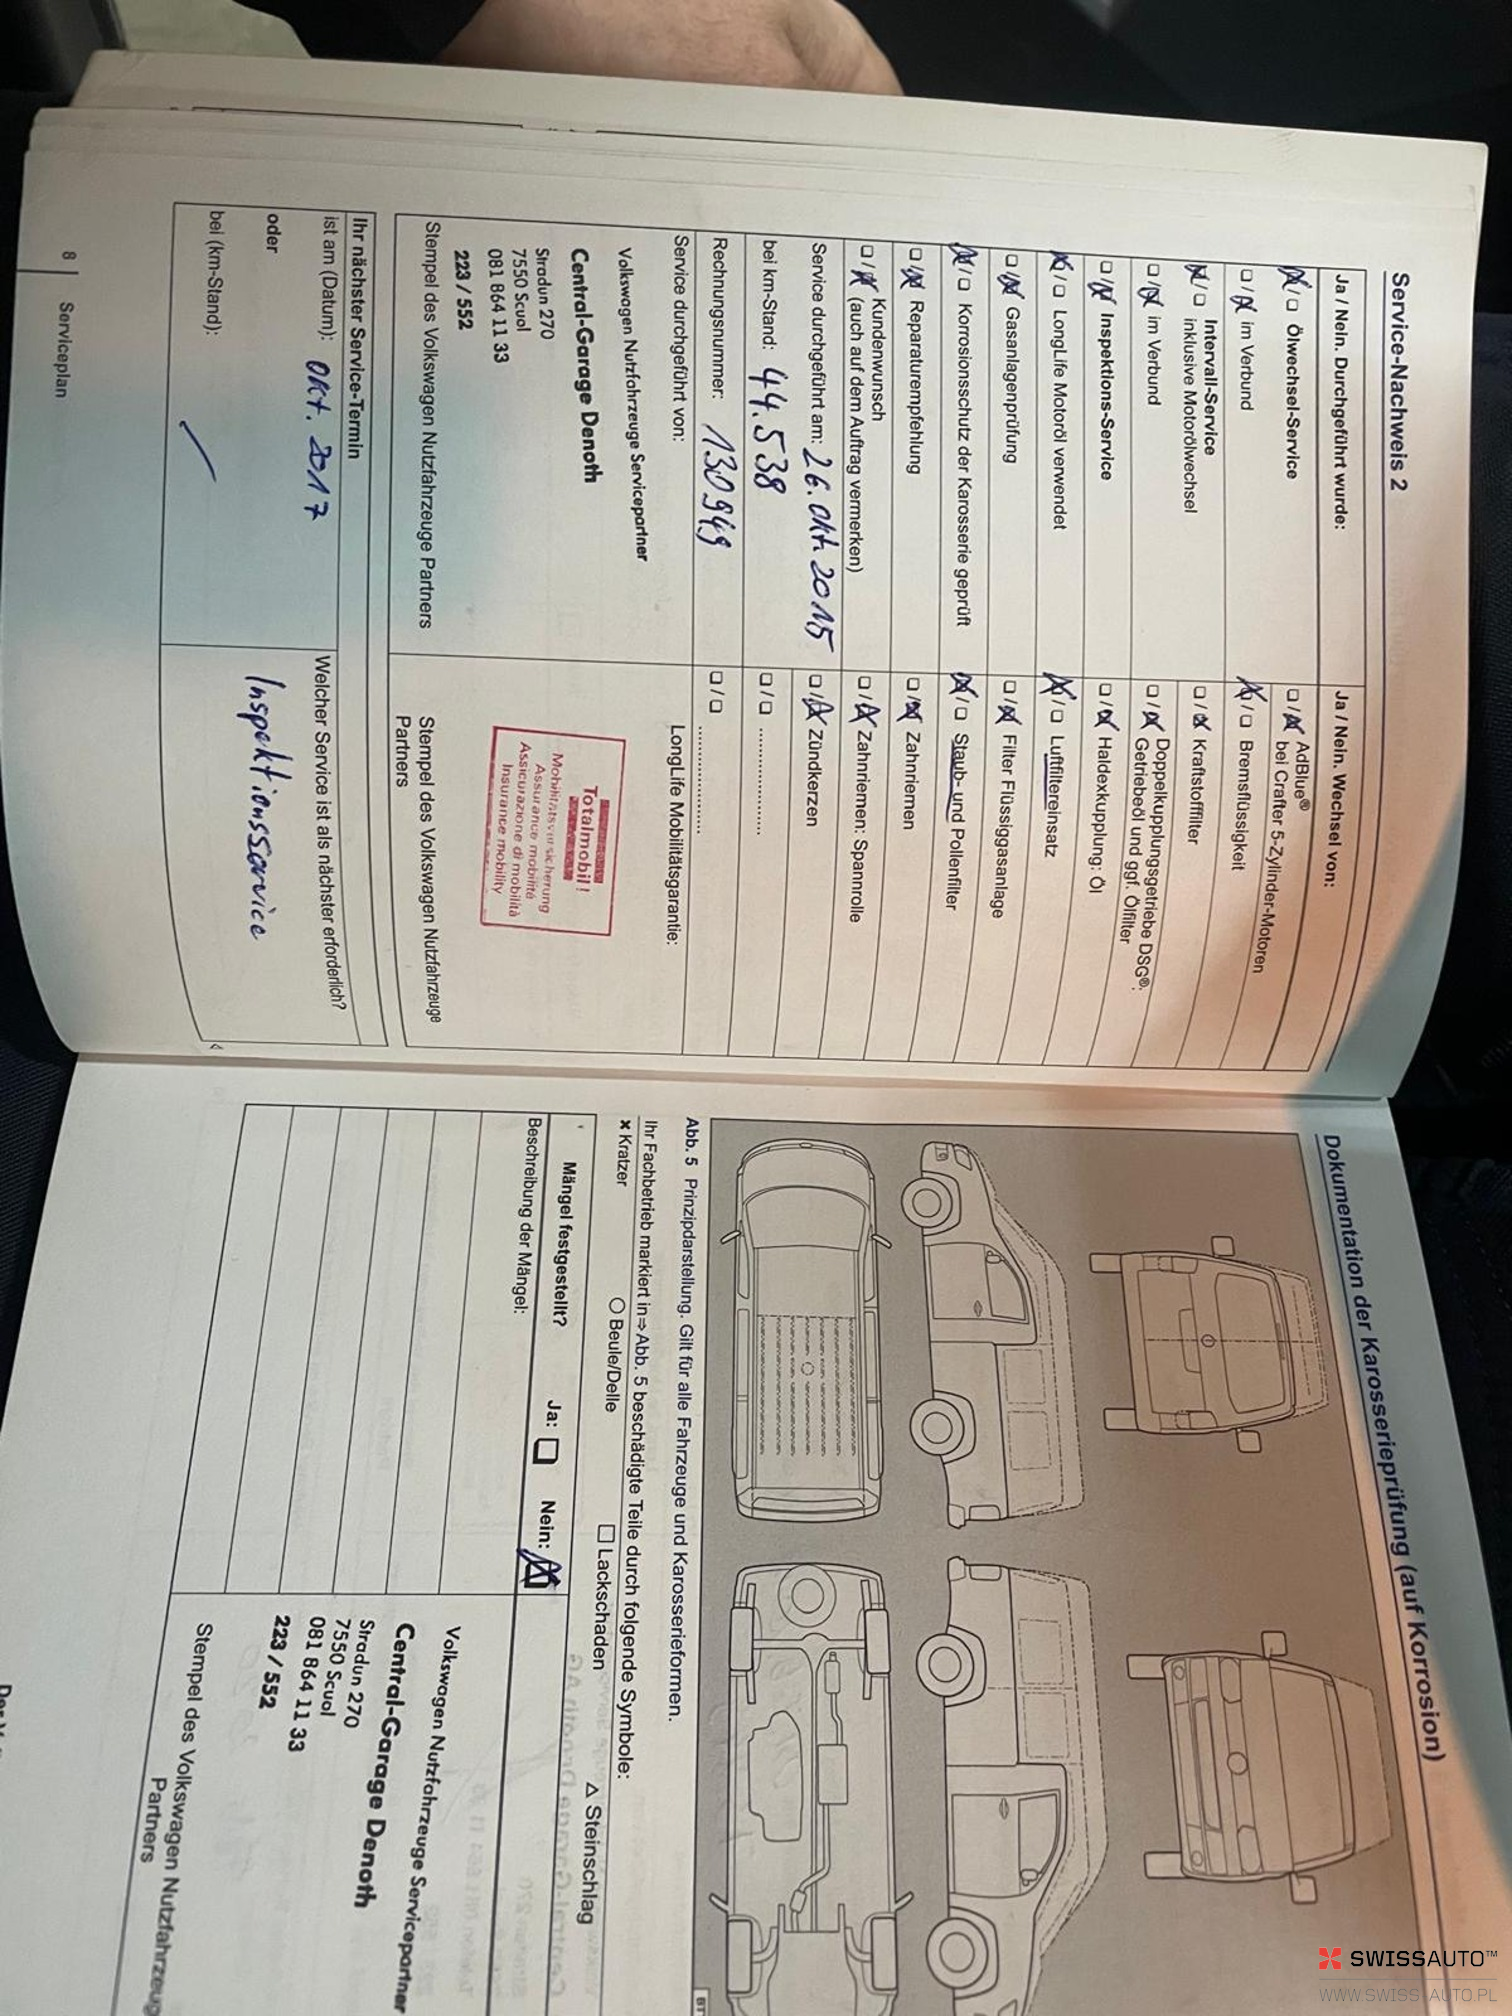 Service-Nachweis 2
Ja / Nein. Durchgeführt wurde:
Ja / Nein. Wechsel von:
Ölwechsel-Service
AdBlue®
bei Crafter 5-Zylinder-Motoren
im Verbund
Bremsflüssigkeit
Intervall-Service
inklusive Motorölwechsel
Kraftstofffilter
im Verbund
Doppelkupplungsgetriebe DSG®:
Getriebeöl und ggf. Ölfilter
Inspektions-Service
Haldexkupplung: Öl
LongLife Motoröl verwendet
Luftfiltereinsatz
Gasanlagenprüfung
Filter Flüssiggasanlage
Korrosionsschutz der Karosserie geprüft
Staub- und Pollenfilter
Reparaturempfehlung
Zahnriemen
Kundenwunsch
(auch auf dem Auftrag vermerken)
Zahnriemen: Spannrolle
Service durchgeführt am: 26. Okt. 2015
Zündkerzen
bei km-Stand: 44.538
Rechnungsnummer: 130949
Service durchgeführt von:
LongLife Mobilitätsgarantie:
Volkswagen Nutzfahrzeuge Servicepartner
Central-Garage Denoth
Stradun 270
7550 Scuol
081 864 11 33
223 / 552
Totalmobil!
Mobilitätsversicherung
Assurance mobilité
Assicurazione di mobilità
Insurance mobility
Stempel des Volkswagen Nutzfahrzeuge Partners
Stempel des Volkswagen Nutzfahrzeuge
Partners
Ihr nächster Service-Termin
ist am (Datum): Okt. 2017
Welcher Service ist als nächster erforderlich?
oder
Inspektionsservice
bei (km-Stand):
8 Serviceplan
Dokumentation der Karosserieprüfung (auf Korrosion)
Abb. 5 Prinzipdarstellung. Gilt für alle Fahrzeuge und Karosserieformen.
Ihr Fachbetrieb markiert in ⇒ Abb. 5 beschädigte Teile durch folgende Symbole:
× Kratzer ○ Beule/Delle □ Lackschaden △ Steinschlag
Mängel festgestellt? Ja: Nein:
Beschreibung der Mängel:
Volkswagen Nutzfahrzeuge Servicepartner
Central-Garage Denoth
Stradun 270
7550 Scuol
081 864 11 33
223 / 552
Stempel des Volkswagen Nutzfahrzeug
Partners
SWISSAUTO™
WWW.SWISSAUTO.PL